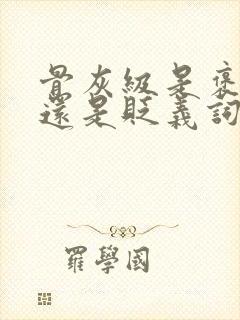 骨灰級是褒
還是貶義詞
羅學國